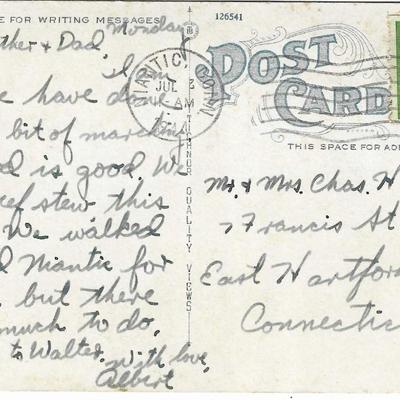 E FOR WRITING MESSAGES
126541
Monday
ther & Dad
I am
e have done
bit of marching
d is good. We
ef stew this
We walked
d Niantic for
, but there
much to do.
to Walter.
With love,
Albert
NIANTIC, CONN.
JUL
AM
TICHNOR QUALITY VIEWS
POST
CARD
THIS SPACE FOR AD
Mr. & Mrs. Chas. H
7 Francis St
East Hartfor
Connectic